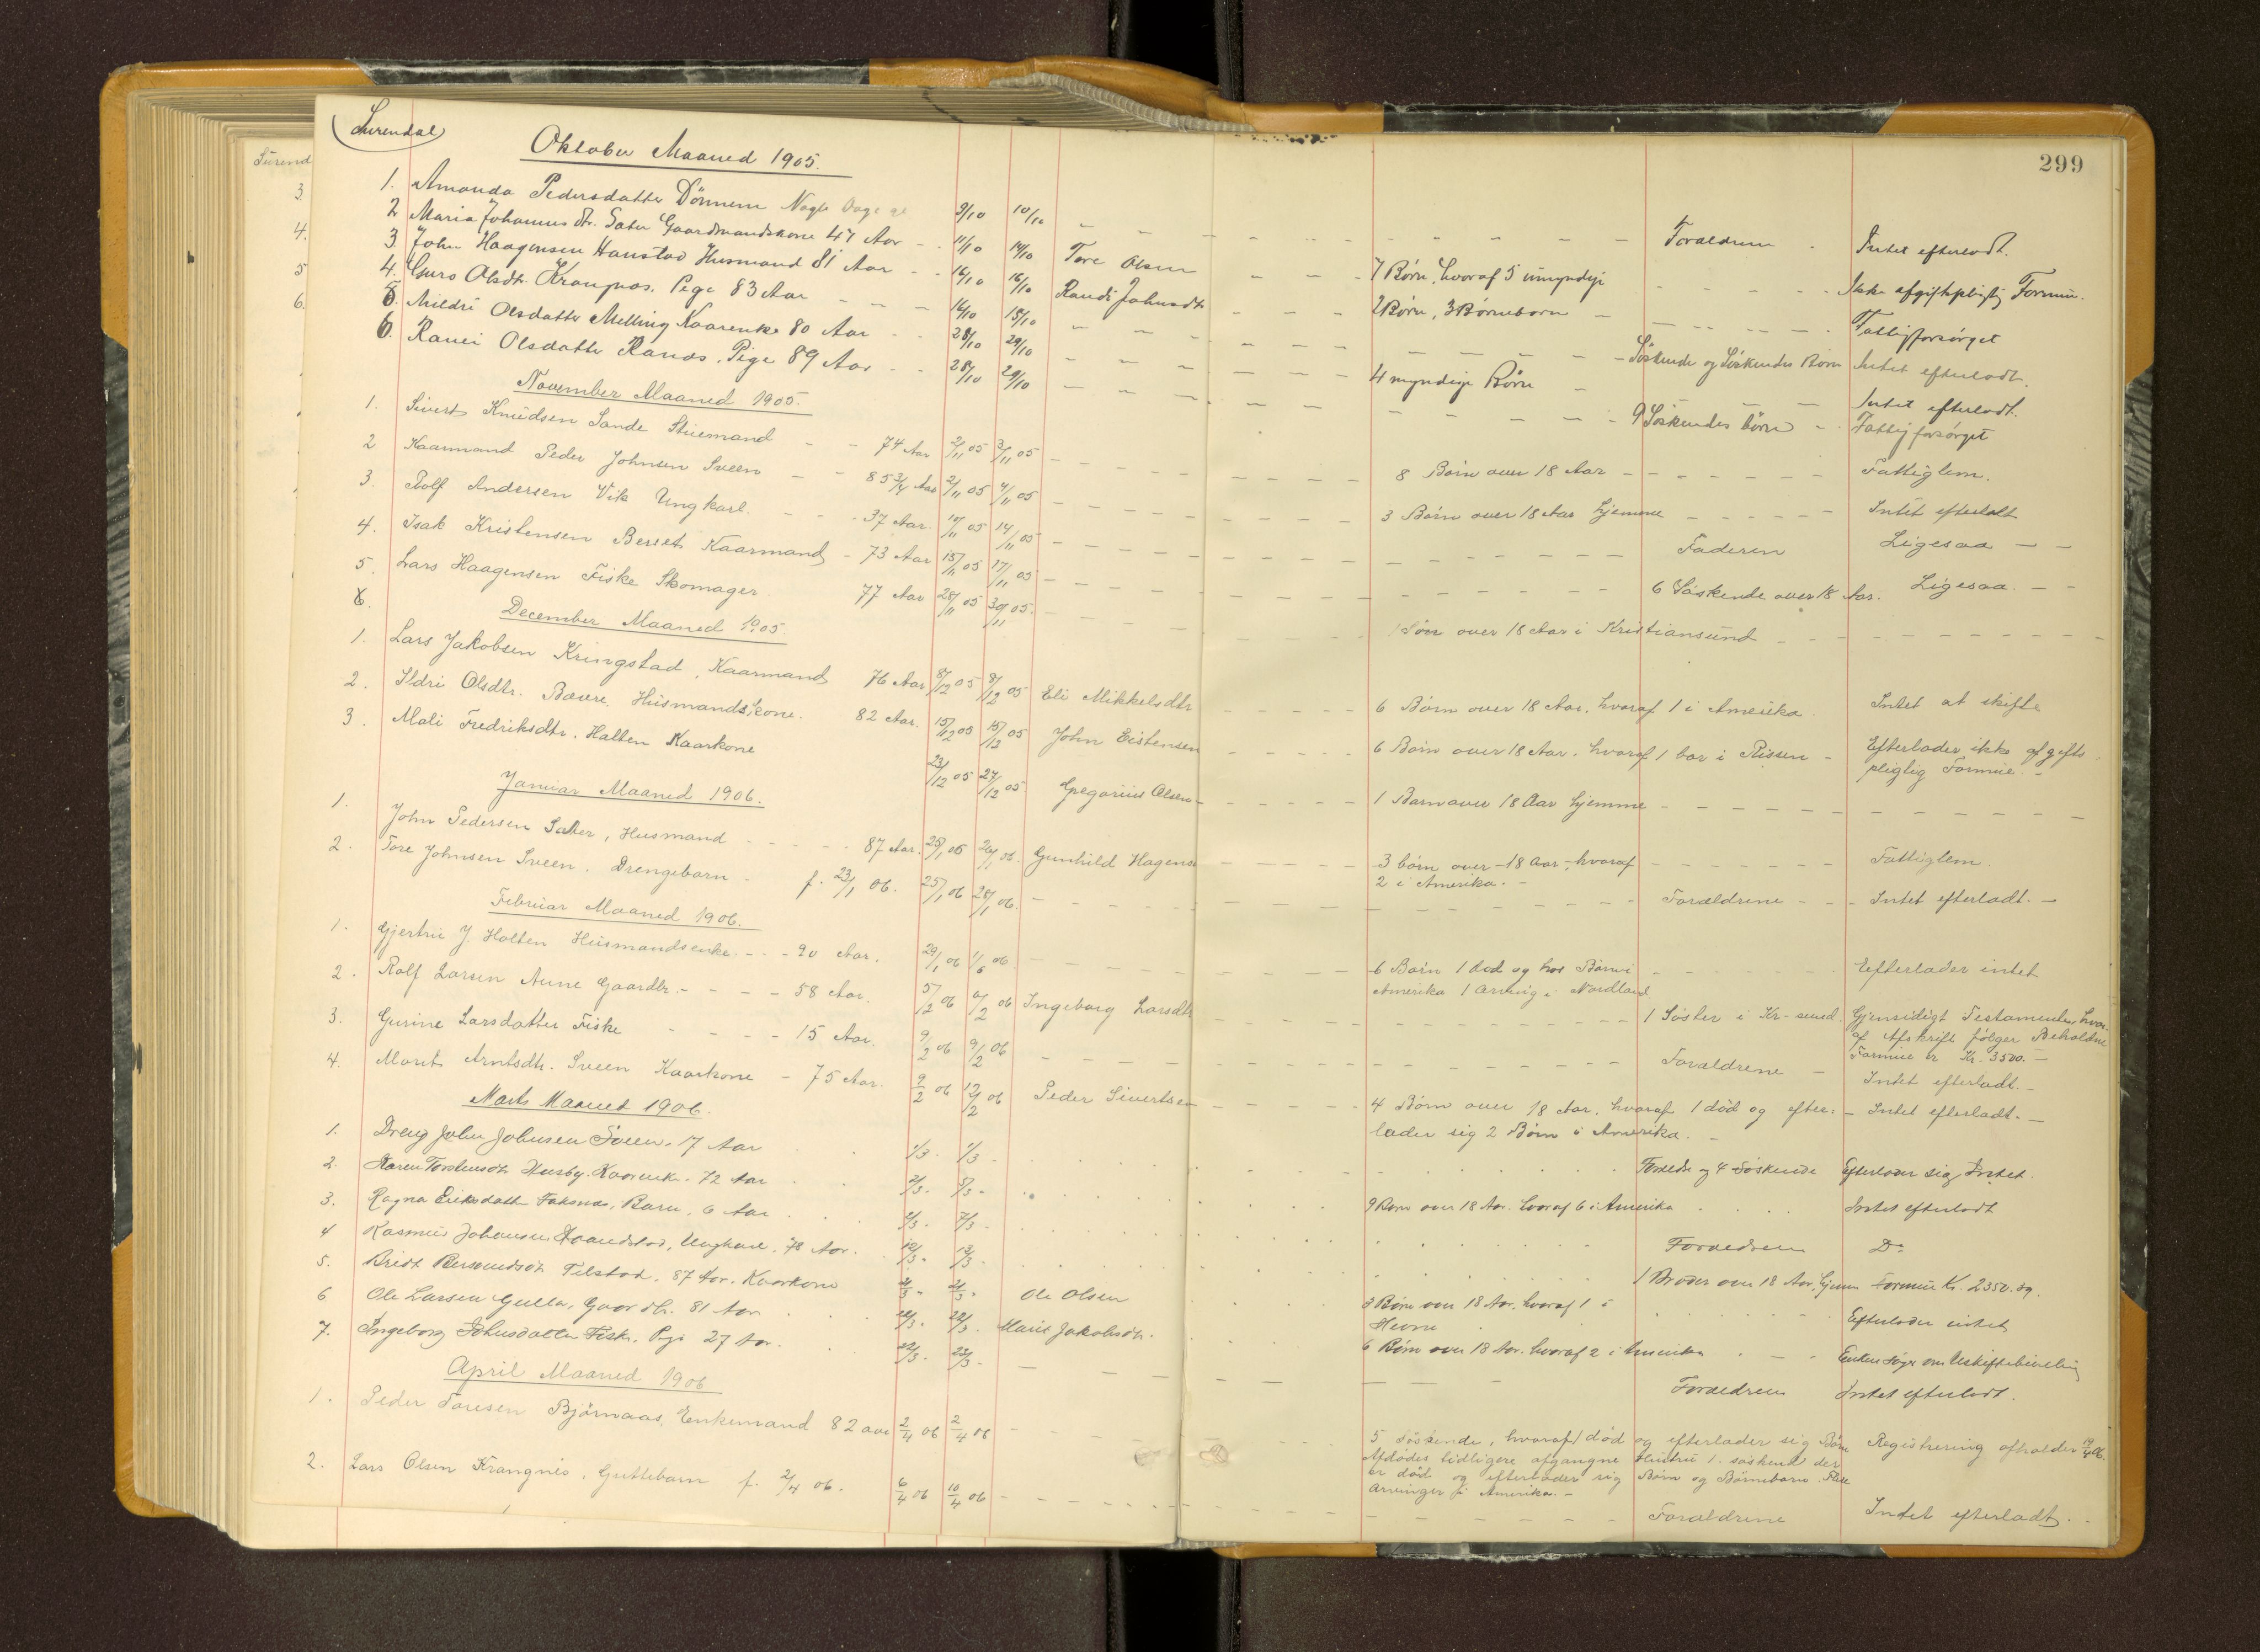 299
Surendal
Oktober Maaned 1905.
1. Amanda Pedersdatter Dönnem Nogle Dage 9/10 10/10 Forældrene Intet efterladt.
2 Maria Johannesdtr. Sæter Gaardmandskone 47 Aar 11/10 14/10 Tore Olsen 7 Børn, hvoraf 5 umyndige Ikke afgiftspligtig Formue.
3 John Haagensen Hanstad Husmand 81 Aar 16/10 16/10 Randi Johnsdtr 2 Børn, 3 Børneborn Fattigforsörget
4. Guro Olsdtr. Krangnæs. Pige 83 Aar 16/10 18/10 Söskende og Söskendes Børn Intet efterladt.
5. Mildri Olsdatter Melling Kaarenke 80 Aar 28/10 29/10 4 myndige Børn Intet efterladt.
6. Ranei Olsdatter Ranæs. Pige 89 Aar 28/10 29/10 9 Söskendes börn Fattigforsörget
November Maaned 1905.
1. Sivert Knudsen Sande Stuemand 74 Aar 2/11 05 3/11 05 8 Børn over 18 Aar Fattiglem.
2 Kaarmand Peder Johnsen Sveen 85 3/4 Aar 2/11 05 4/11 05 3 Børn over 18 Aar hjemme Intet efterladt
3. Rolf Andersen Vik Ungkarl. 37 Aar. 10/11 05 14/11 05 Faderen Ligesaa
4. Isak Kristensen Berset Kaarmand 73 Aar 15/11 05 17/11 05 6 Søskende over 18 Aar. Ligesaa.
5. Lars Haagensen Fiske Skomager. 77 Aar 28/11 05 30/11 05. 1 Søn over 18 Aar i Kristiansund
6.
December Maaned 1905.
1. Lars Jakobsen Kringstad, Kaarmand 76 Aar 8/12 05 9/12 05 Eli Mikkelsdtr 6 Børn over 18 Aar, hvoraf 1 i Amerika. Intet at skifte
2. Ildri Olsdtr. Bævre, Husmandskone. 82 Aar. 15/12 05 15/12 05 John Eistensen 6 Børn over 18 Aar, hvoraf 1 bor i Rissen Efterlader ikke afgifts
pligtig Formue.
3. Mali Fredriksdtr. Halten Kaarkone 23/12 05 27/12 05 Gregorius Olsen 1 Barn over 18 Aar hjemme
Januar Maaned 1906.
1. John Pedersen Sæter, Husmand 87 Aar. 25/1 06 26/1 06. Gunhild Hagensd 3 børn over 18 Aar, hvoraf
2 i Amerika. Fattiglem
2. Tore Johnsen Sveen. Drengebarn f. 23/1 06. 25/1 06 28/1 06. Forældrene Intet efterladt.
Februar Maaned 1906.
1. Gjertru J. Holten Husmandsenke. 90 Aar. 29/1 06 1/6 06 6 Børn 1 død og har Børn i
Amerika 1 Arving i Nordland Efterlader intet
2. Rolf Larsen Aune Gaardbr. 58 Aar. 5/2 06 6/2 06 Ingeborg Larsdtr 1 Søster i Kr-sund. Gjensidigt Testamente, hvor-
af Afskrift følger Beholdne
Formue er Kr. 3500.
3. Gurine Larsdatter Fiske 15 Aar. 9/2 06 9/2 06 Forældrene Intet efterladt.
4. Marit Arntsdtr. Sveen Kaarkone 75 Aar. 9/2 06 12/2 06 Peder Sivertsen 4 Børn over 18 Aar, hvoraf 1 død og efter-
lader sig 2 Børn i Amerika. Intet efterladt.
Marts Maaned 1906.
1. Dreng John Johnsen Sveen. 17 Aar 1/3. 1/3. Foreldre og 4 Söskende Efterlader sig Intet.
2. Karen Torstensdtr Husby. Kaarenke. 72 Aar 2/3. 5/3. 9 Børn over 18 Aar. hvoraf 6 i Amerika Intet efterladt
3. Ragna Eriksdatter Faksnæs, Barn, 6 Aar 2/3. 7/3. Forældrene Do
4 Rasmus Johansen Haandstad, Ungkarl, 78 Aar. 12/3. 13/3. 1 Broder over 18 Aar. hjemme Formue Kr. 2350.39.
5. Tilstad. 87 Aar. Kaarkone 21/3. 21/3. Ole Olsen 3 Børn over 18 Aar, hvoraf 1 i
Hevne Efterlader intet
6 Ole Larsen Gulla, Gaardbr. 81 Aar 22/3. 22/3. Marit Jakobsdtr. 6 Børn over 18 Aar. hvoraf 2 i Amerika Enken søger om Uskiftebevilling
7. Ingeborg Johnsdatter Fiske. Pige 27 Aar. 22/3. 23/3. Forældrene Intet efterladt.
April Maaned 1906
1. Peder Toresen Bjørnaas, Enkemand 82 aar 2/4 06 2/4 06 5 Söskende, hvoraf 1 død og efterlader sig Børn Registrering afholdes 19/4 06.
Afdødes tidligere afgangne Hustru 1. søskend der
er død og efterlader sig Børn og Børnebørn. Flere
Arvinger i Amerika.
2. Lars Olsen Krangnes, Guttebarn f. 2/4 06. 6/4 06 10/4 06 Forældrene Intet efterladt.
Surend
3
4.
5
6.